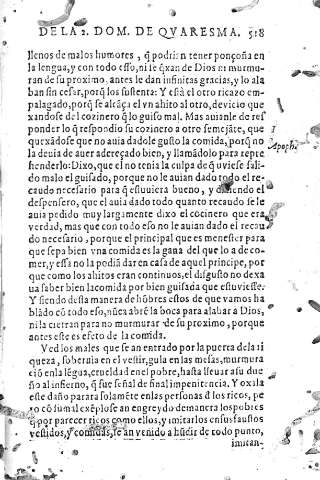 DE LA 2. DOM. DE QVARESMA. 518
llenos de malos humores, q̃ podrian tener ponçoña en
la lengua, y con todo esso, ni se q̃xan de Dios ni murmu-
ran de su proximo, antes le dan infinitas gracias, y lo ala
ban sin cesar, porq̃ los sustenta: Y està el otro ricazo em-
palagado, porq̃ se alcãça el vn ahito al otro, de vicio que
xandose del cozinero q̃ lo guiso mal. Mas auianle de res
ponder lo q̃ respondio su cozinero a otro semejãte, que
quexãdose que no auia dadole gusto la comida, porq̃ no
la deuia de auer adereçado bien, y llamãdolo para repre
henderlo: Dixo, que el no tenia la culpa de q̃ vuiese sali-
do malo el guisado, porque no le auian dado todo el re-
caudo necesario para q̃ estuuiera bueno, y diziendo el
despensero, que el auia dado todo quanto recaudo se le
auia pedido muy largamente dixo el cozinero que era
verdad, mas que con todo eso no le auian dado el recau
do necesario, porque el principal que es menester para
que sepa bien vna comida es la gana del que lo a de co-
mer, y essa no la podiã dar en casa de aquel principe, por
que como los ahitos eran continuos, el disgusto no dexa
ua saber bien la comida por bien guisada que estuuiesse.
Y siendo desta manera de hõbres estos de que vamos ha
blãdo cõ todo eso, nũca abrẽ la boca para alabar a Dios,
ni la cierran para no murmurar de su proximo, porque
antes este es efeto de la comida.
Ved los males que se an entrado por la puerta de la ri
queza, soberuia en el vestir, gula en las mesas, murmura
ciõ en la lẽgua, crueldad en el pobre, hasta lleuar a su due
ño al infierno, q̃ fue señal de final impenitencia. Y oxala
este daño parara solamẽte en las personas d̃ los ricos, pe
ro cõ su mal exẽplo se an engreydo de manera los pobres
q̃ por parecer ricos como ellos, y imitarlos en sus faustos
vestidos, y comidas, se an venido a hũdir de todo punto,
imitan-